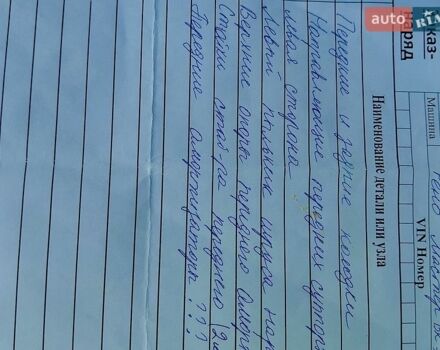 auto RIA
каз-
наряд
Машина
VIN Номер
Наименование детали или узла
Передние и задние колодки
Направляющие передних суппор
левая сторона
Левый пыльник шруса нар
Верхние опоры переднего аморт
Стойки стаб-ра переднего 2ш
Передние амортизаторы ???